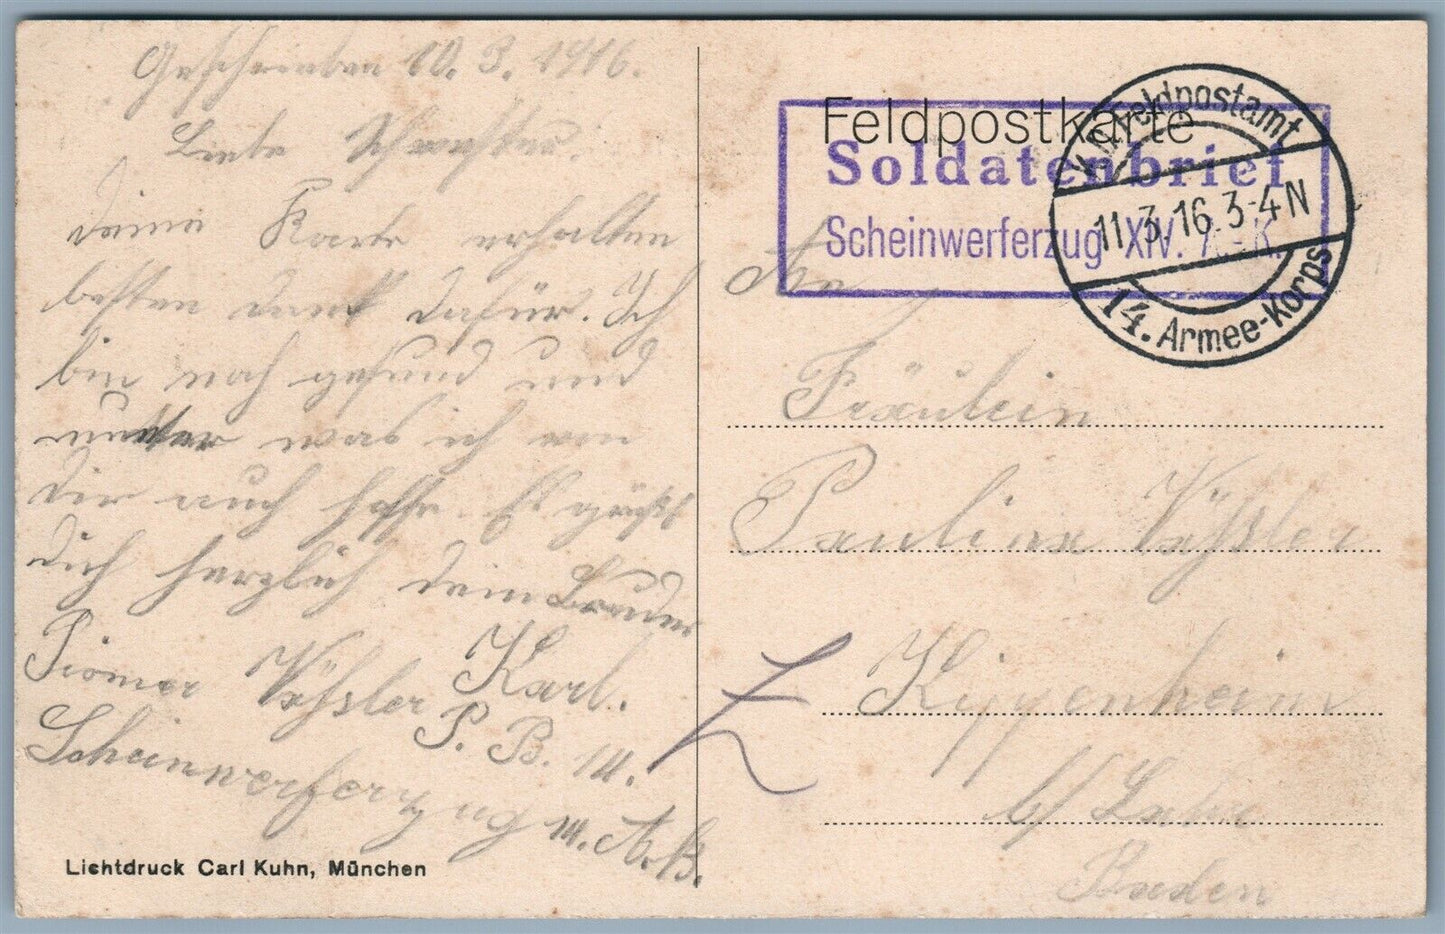 Geschrieben 10. 3. 1916.
Liebe Schwester.
deine Karte erhalten
besten dank dafür. Ich
bin noch gesund und
munter was ich von
dir auch hoffe. Es grüßt
dich herzlich dein Bruder
Pionier Karl.
P. B. 14.
Scheinwerferzug 14. A. K.
Lichtdruck Carl Kuhn, München
Feldpostkarte
Soldatenbrief
Scheinwerferzug XIV. A.-K.
K.D. Feldpostamt
11.3.16. 3-4 N
14. Armee-Korps
An
Fräulein
Paulina
Kippenheim
b/ Lahr
Baden